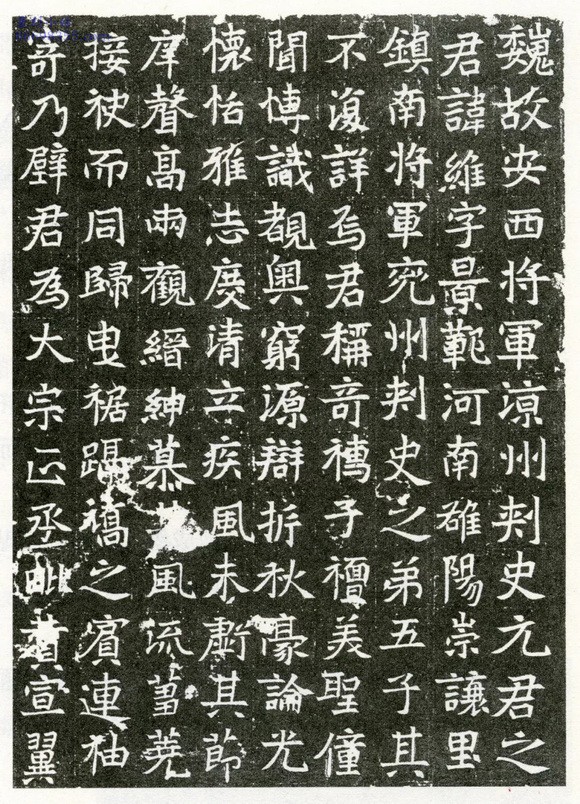 魏故安西將軍涼州刾史元君之
君諱維字景範河南雒陽崇讓里
鎮南將軍兖州刾史之弟五子其
不復詳焉君稱奇襁子美聖僮
聞博識覩奧窮源辯析秋豪論光
懷恬雅志度清立疾風未其節
庠聲高兩觀縉紳慕風流蒭蕘
接袂而同歸曳裾躡之賔連袖
奇乃辟君為大宗正丞毗賛宣翼